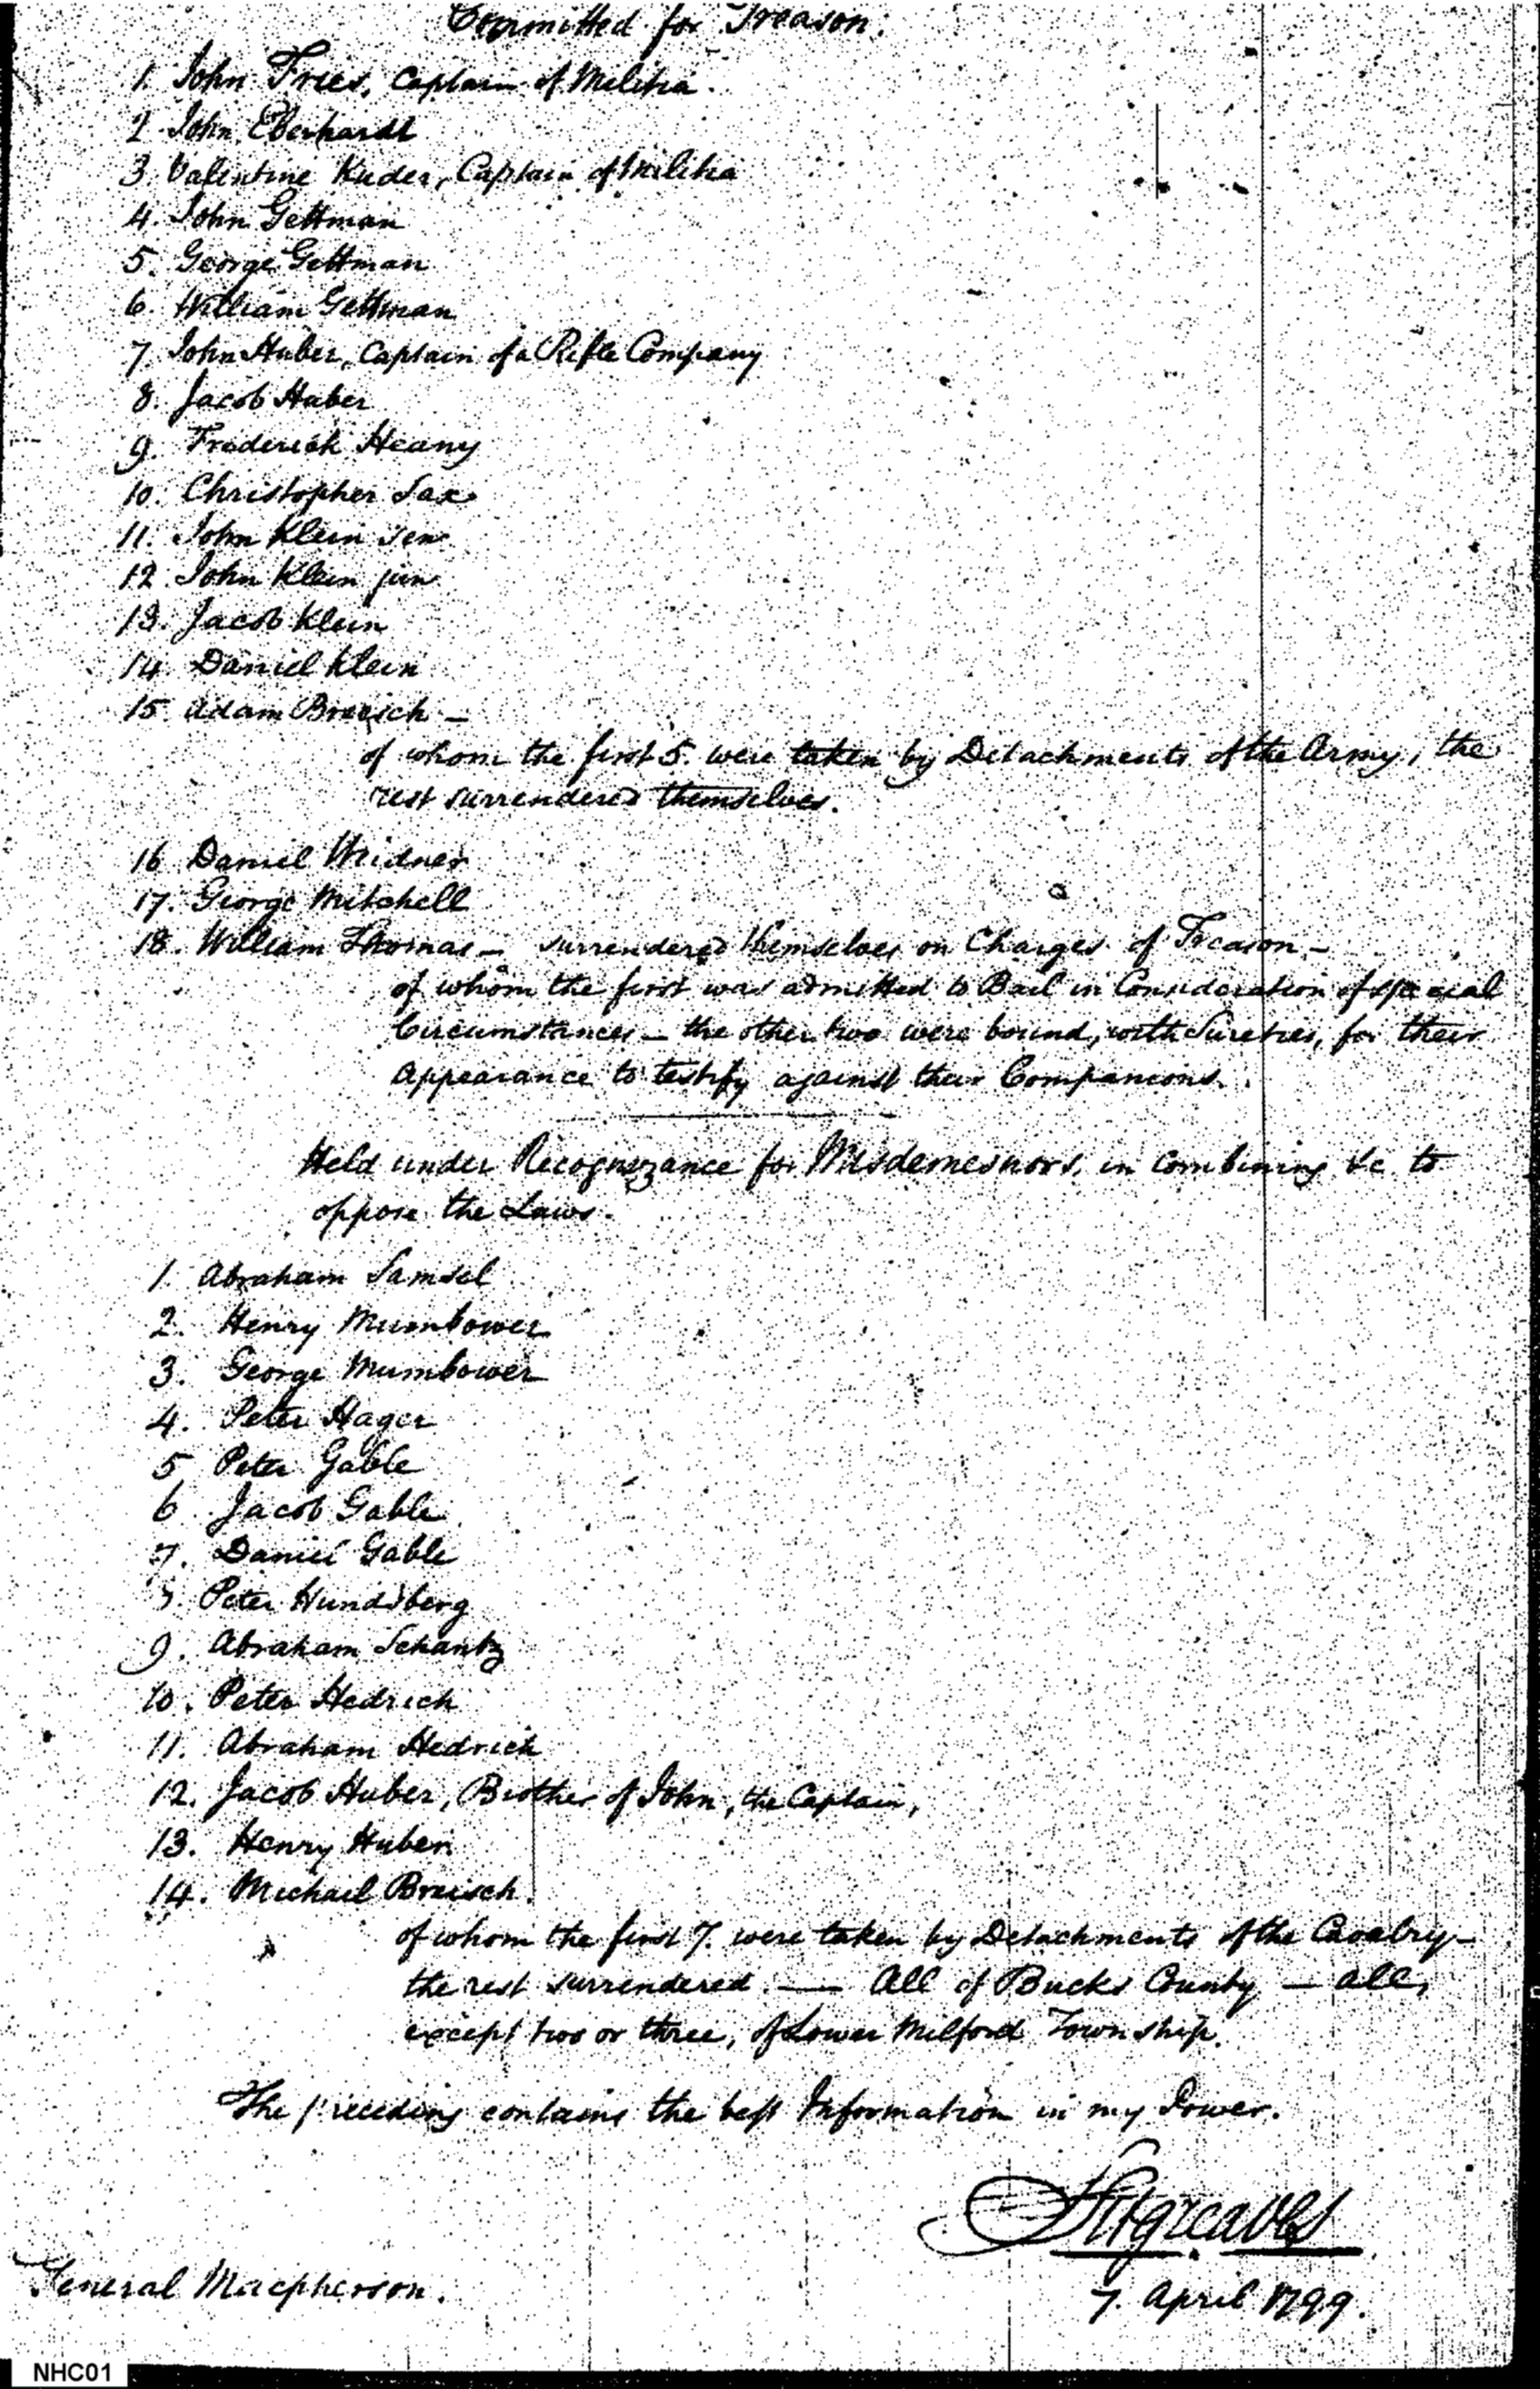 Committed for Treason.
1. John Fries, Captain of Militia.
2 John Eberhardt
3. Valentine Kuder, Captain of Militia
4. John Gettman
5. George Gettman
6. William Gettman
7. John Huber, Captain of a Rifle Company
8. Jacob Huber
9. Frederick Heany
10. Christopher Sax
11. John Klein sen
12 John Klein jun
13. Jacob Klein
14 Daniel Klein
15 Adam Breisch —
of whom the first 5. were taken by Detachments of the Army, the
rest surrendered themselves.
16 Daniel Weidner
17. George Mitchell
18. William Thomas — surrendered themselves on Charges of Treason —
of whom the first was admitted to Bail in Consideration of special
Circumstances — the other two were bound, with Sureties, for their
Appearance to testify against their Companions.
Held under Recognizance for Misdemesnors, in combining &c to
oppose the Laws.
1. Abraham Samsel
2. Henry Mumbower
3. George Mumbower
4. Peter Hager
5 Peter Gable
6 Jacob Gable
7. Daniel Gable
Peter Hundsberg
9. Abraham Schantz
10. Peter Hedrich
11. Abraham Hedrich
12. Jacob Huber, Brother of John, the Captain,
13. Henry Huber
14. Michael Breisch.
of whom the first 7. were taken by Detachments of the Cavalry —
the rest surrendered. — All of Bucks County — all,
except two or three, of Lower Milford Township.
The preceding contains the best Information in my Power.
Sitgreaves
7. April 1799.
General Macpherson.
NHC01